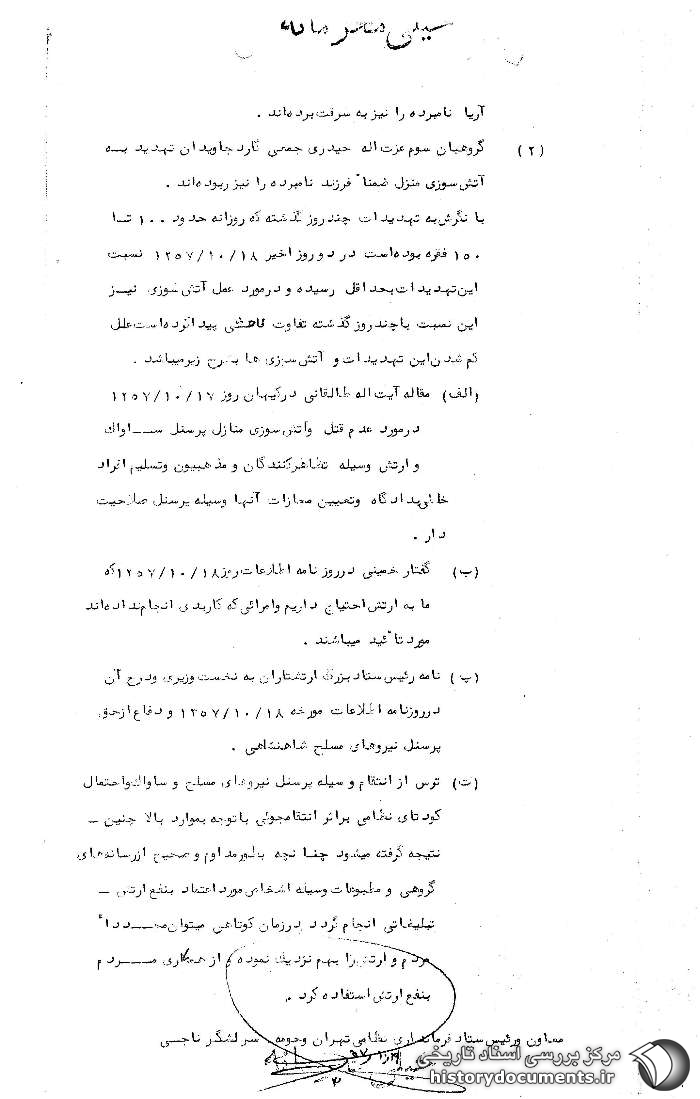 آریا نامبرده را نیز به سرقت برده‌اند .
(۲) گروهبان سوم عزت‌اله حیدری جمعی گارد جاویدان تهدید بـــه
آتش‌سوزی منزل ضمناً فرزند نامبرده را نیز ربوده‌اند .
با نگرش به تهدیدات چند روز گذشته که روزانه حدود ۱۰۰ تــا
۱۵۰ فقره بوده‌است در دو روز اخیر ۱۳۵۷/۱۰/۱۸ نسبت
این تهدیدات بحداقل رسیده و در مورد عمل آتش‌سوزی نیــز
این نسبت با چند روز گذشته تفاوت فاحشی پیدا کرده‌است علل
کم شدن این تهدیدات و آتش‌سوزی ها بشرح زیر میباشد .
(الف) مقاله آیت‌اله طالقانی در کیهان روز ۱۳۵۷/۱۰/۱۷
در مورد عدم قتل وآتش‌سوزی منازل پرسنل ســـاواك
و ارتش وسیله تظاهرکنندگان و مذهبیون وتسلیم افراد
خاطی بدادگاه وتعیین مجازات آنها وسیله پرسنل صلاحیت
دار .
(ب) گفتار خمینی در روزنامه اطلاعات روز ۱۳۵۷/۱۰/۱۸ که
ما به ارتش احتیاج داریم وامرائی که کار بدی انجام نداده‌اند
مورد تأئید میباشند .
(پ) نامه رئیس ستاد بزرگ ارتشتاران به نخست وزیری ودرج آن
در روزنامه اطلاعات مورخه ۱۳۵۷/۱۰/۱۸ و دفاع از حق
پرسنل نیروهای مسلح شاهنشاهی .
(ت) ترس از انتقام وسیله پرسنل نیروهای مسلح و ساواك واحتمال
کودتای نظامی براثر انتقامجوئی باتوجه بموارد بالا چنین ـ
نتیجه گرفته میشود چنانچه بطور مداوم و صحیح از رسانه‌های
گروهی و مطبوعات وسیله اشخاص مورد اعتماد بنفع ارتش ـ
تبلیغاتی انجام گردد در زمان کوتاهی میتوان مجــــدداً
مردم و ارتش را بهم نزدیك نموده و از همکاری مـــردم
بنفع ارتش استفاده کرد .
معاون و رئیس ستاد فرمانداری نظامی تهران وحومه . سرلشگر ناجسی
مرکز بررسی اسناد تاریخی
historydocuments.ir